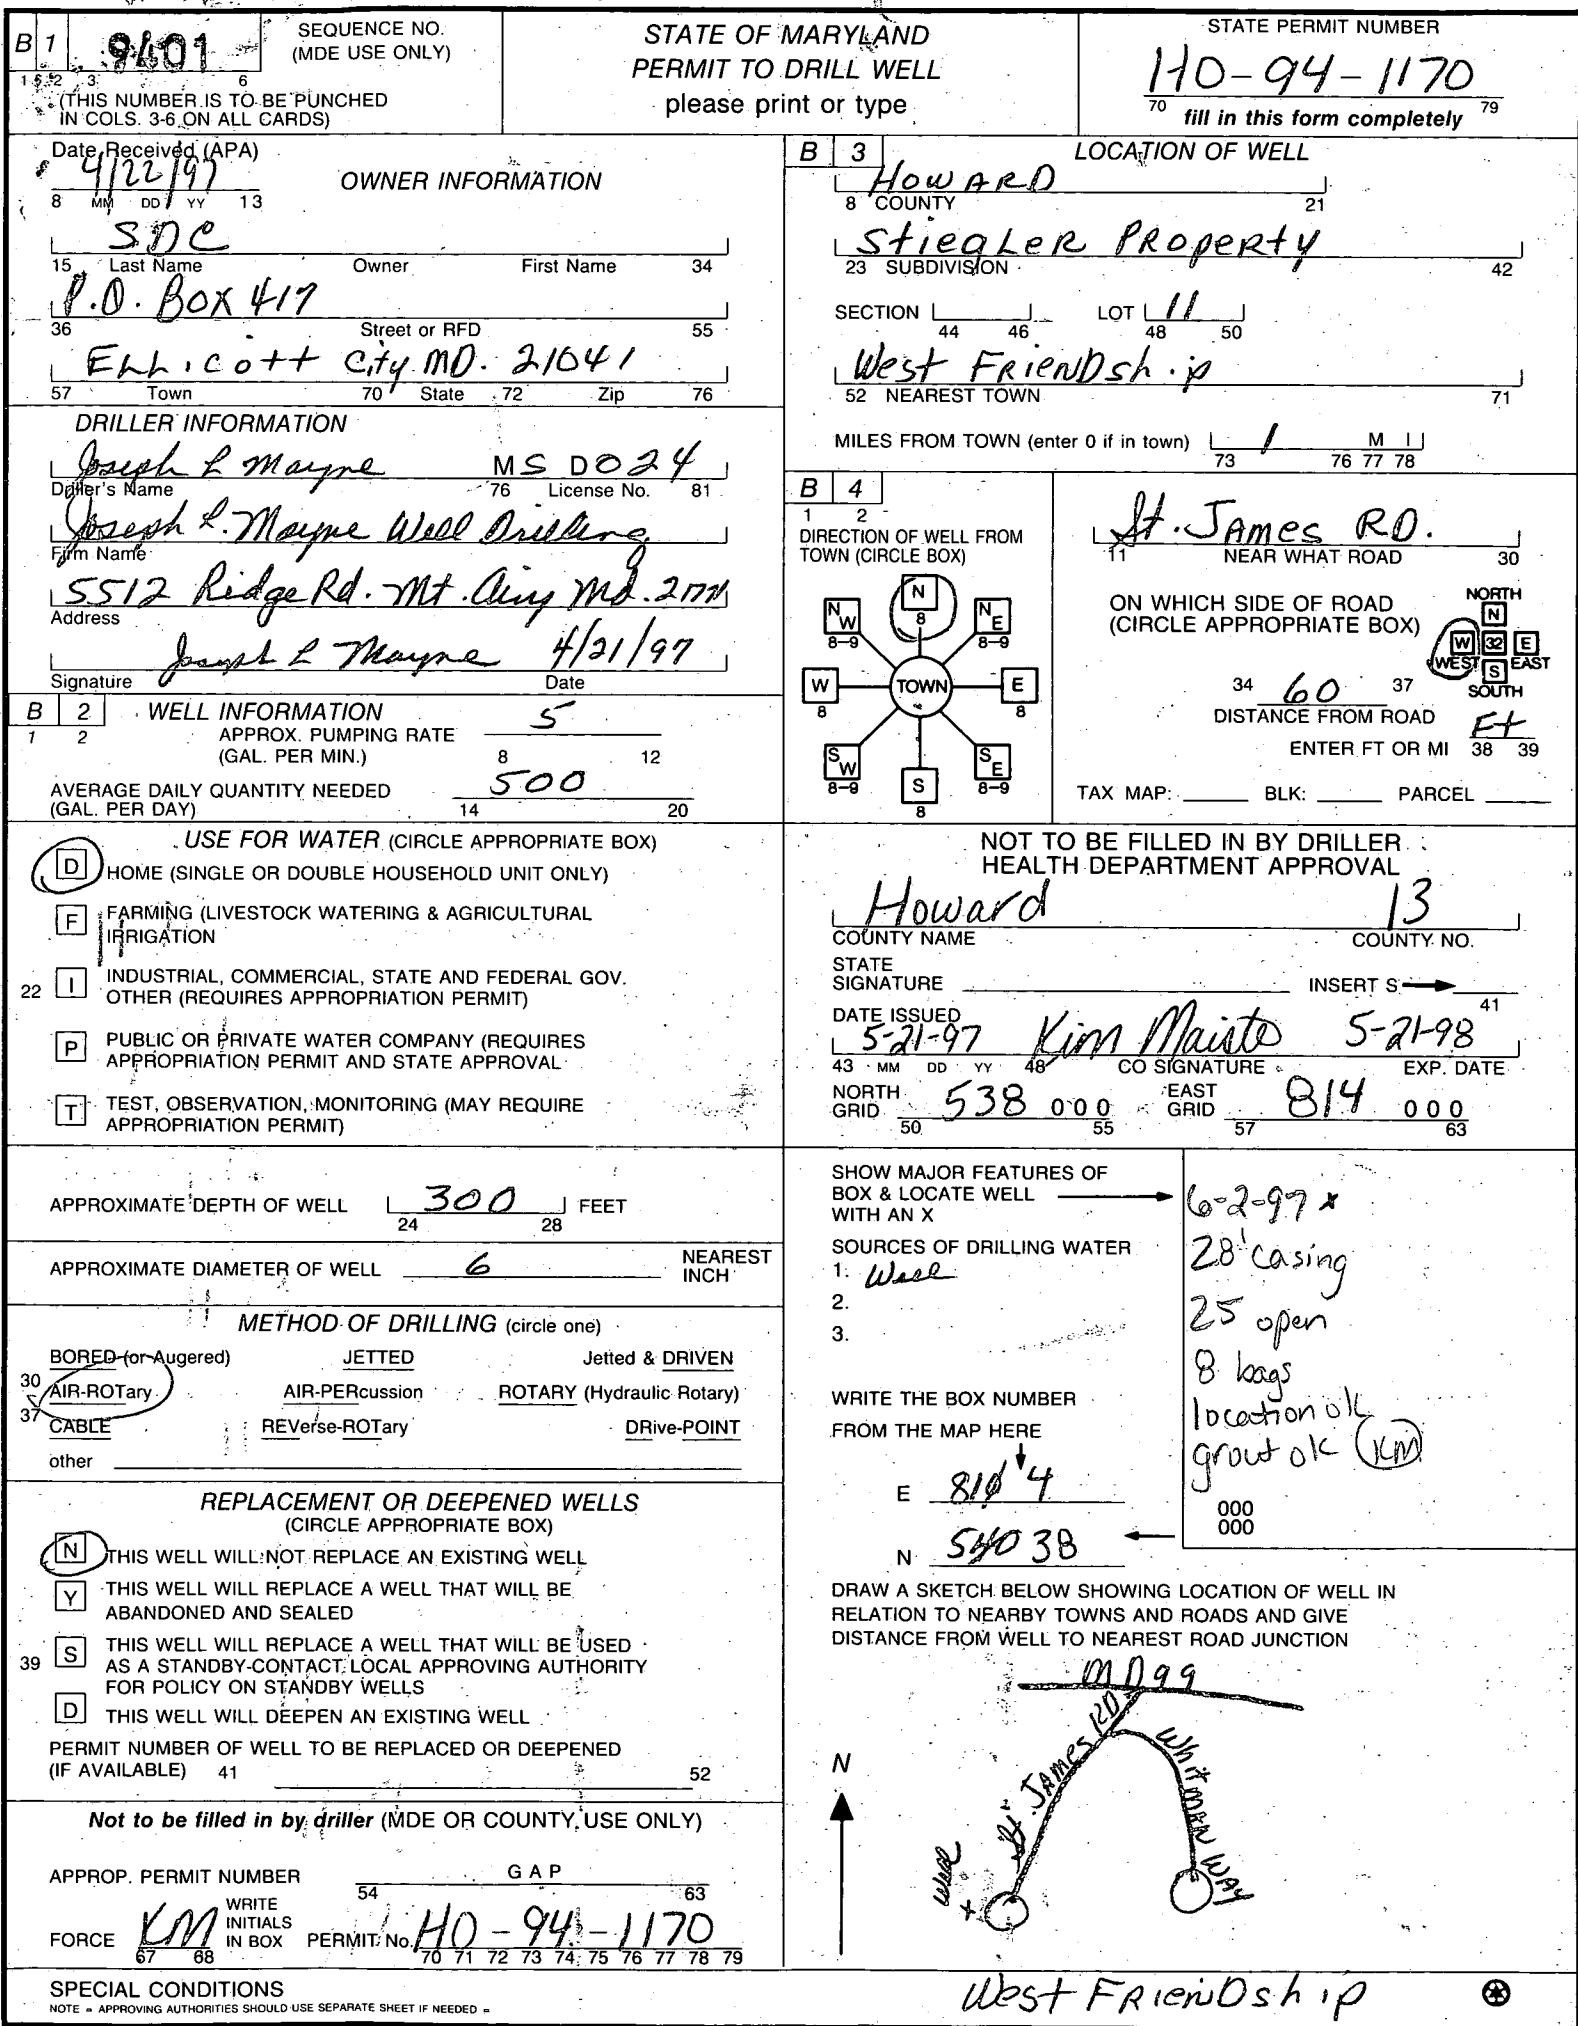 B 1 9401 SEQUENCE NO. (MDE USE ONLY)
1 2 3 6
(THIS NUMBER IS TO BE PUNCHED
IN COLS. 3-6 ON ALL CARDS)
STATE OF MARYLAND
PERMIT TO DRILL WELL
please print or type
STATE PERMIT NUMBER
HO-94-1170
70 fill in this form completely 79
Date Received (APA)
4/22/97
8 MM DD YY 13
OWNER INFORMATION
SDC
15 Last Name Owner First Name 34
P.O. Box 417
36 Street or RFD 55
Ellicott City MD. 21041
57 Town 70 State 72 Zip 76
DRILLER INFORMATION
Joseph L Mayne MS D024
Driller's Name 76 License No. 81
Joseph L. Mayne Well Drilling
Firm Name
5512 Ridge Rd. Mt. Airy Md. 21771
Address
Joseph L Mayne 4/21/97
Signature Date
B 2 WELL INFORMATION
1 2
APPROX. PUMPING RATE 5
(GAL. PER MIN.) 8 12
AVERAGE DAILY QUANTITY NEEDED 500
(GAL. PER DAY) 14 20
USE FOR WATER (CIRCLE APPROPRIATE BOX)
D HOME (SINGLE OR DOUBLE HOUSEHOLD UNIT ONLY)
F FARMING (LIVESTOCK WATERING & AGRICULTURAL
IRRIGATION
22 I INDUSTRIAL, COMMERCIAL, STATE AND FEDERAL GOV.
OTHER (REQUIRES APPROPRIATION PERMIT)
P PUBLIC OR PRIVATE WATER COMPANY (REQUIRES
APPROPRIATION PERMIT AND STATE APPROVAL
T TEST, OBSERVATION, MONITORING (MAY REQUIRE
APPROPRIATION PERMIT)
APPROXIMATE DEPTH OF WELL 300 FEET
24 28
APPROXIMATE DIAMETER OF WELL 6 NEAREST
INCH
METHOD OF DRILLING (circle one)
BORED (or Augered) JETTED Jetted & DRIVEN
30 AIR-ROTary AIR-PERcussion ROTARY (Hydraulic Rotary)
37 CABLE REVerse-ROTary DRive-POINT
other
REPLACEMENT OR DEEPENED WELLS
(CIRCLE APPROPRIATE BOX)
N THIS WELL WILL NOT REPLACE AN EXISTING WELL
Y THIS WELL WILL REPLACE A WELL THAT WILL BE
ABANDONED AND SEALED
39 S THIS WELL WILL REPLACE A WELL THAT WILL BE USED
AS A STANDBY-CONTACT LOCAL APPROVING AUTHORITY
FOR POLICY ON STANDBY WELLS
D THIS WELL WILL DEEPEN AN EXISTING WELL
PERMIT NUMBER OF WELL TO BE REPLACED OR DEEPENED
(IF AVAILABLE) 41 52
Not to be filled in by driller (MDE OR COUNTY USE ONLY)
APPROP. PERMIT NUMBER G A P
54 63
FORCE KM WRITE INITIALS IN BOX PERMIT No. HO-94-1170
67 68 70 71 72 73 74 75 76 77 78 79
SPECIAL CONDITIONS
NOTE = APPROVING AUTHORITIES SHOULD USE SEPARATE SHEET IF NEEDED =
B 3 LOCATION OF WELL
HOWARD
8 COUNTY 21
Stiegler Property
23 SUBDIVISION 42
SECTION LOT 11
44 46 48 50
West Friendship
52 NEAREST TOWN 71
MILES FROM TOWN (enter 0 if in town) 1 M I
73 76 77 78
B 4
1 2
DIRECTION OF WELL FROM
TOWN (CIRCLE BOX)
N 8
NW 8-9 NE 8-9
W 8 TOWN E 8
SW 8-9 SE 8-9
S 8
St. James RD.
11 NEAR WHAT ROAD 30
ON WHICH SIDE OF ROAD
(CIRCLE APPROPRIATE BOX)
NORTH
N
W 32 E
WEST S EAST
SOUTH
34 60 37
DISTANCE FROM ROAD Ft
ENTER FT OR MI 38 39
TAX MAP: BLK: PARCEL
NOT TO BE FILLED IN BY DRILLER
HEALTH DEPARTMENT APPROVAL
Howard 13
COUNTY NAME COUNTY NO.
STATE
SIGNATURE INSERT S
41
DATE ISSUED
5-21-97 Kim Maiste 5-21-98
43 MM DD YY 48 CO SIGNATURE EXP. DATE
NORTH GRID 538 000 EAST GRID 814 000
50 55 57 63
SHOW MAJOR FEATURES OF
BOX & LOCATE WELL
WITH AN X
SOURCES OF DRILLING WATER
1. Well
2.
3.
WRITE THE BOX NUMBER
FROM THE MAP HERE
E 810 4
N 540 38
6-2-97 x
28' casing
25 open
8 bags
location ok
grout ok KM
000
000
DRAW A SKETCH BELOW SHOWING LOCATION OF WELL IN
RELATION TO NEARBY TOWNS AND ROADS AND GIVE
DISTANCE FROM WELL TO NEAREST ROAD JUNCTION
MD 99
St. James RD
Whitman Way
N
Well
+
West Friendship